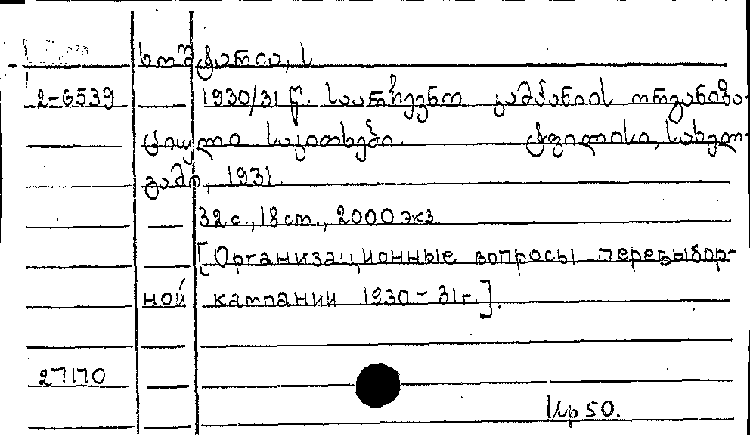 ხოშტარია, ს
2-6539 1930/31 წ. საარჩევნო კამპანიის ორგანიზა-
ციული საკითხები. ტფილისი, სახელ-
გამი, 1931.
32 с., 18 cm., 2000 экз.
[Организационные вопросы перевыбор-
ной кампании 1930-31 г.].
27170
50.